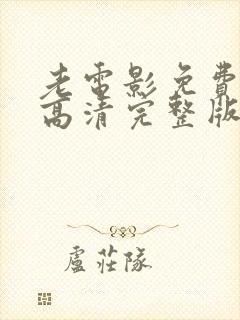 老電影免費
高清完整版
盧莊隊